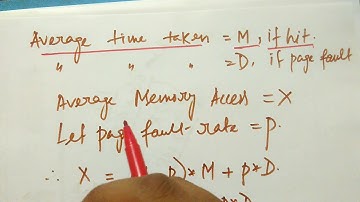 Average time taken = M, if hit.
" " " = D, if page fault
Average Memory Access = X
Let page fault-rate = p.
∴ X = p) * M + p * D.